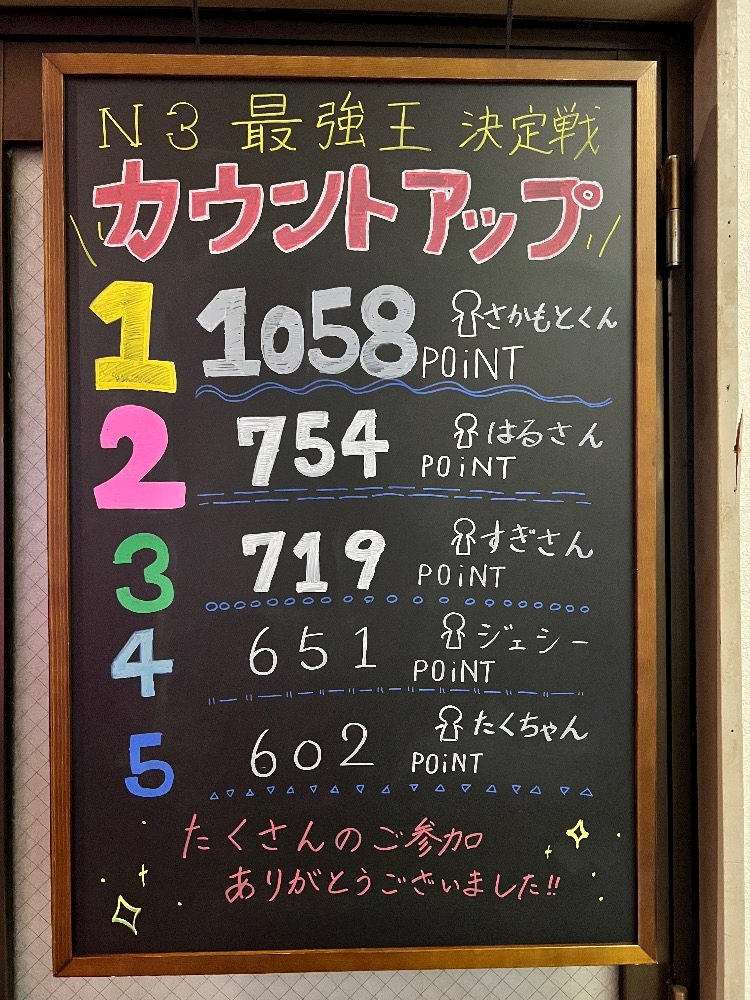 N3 最強王 決定戦
カウントアップ
1 1058 POiNT さかもとくん
2 754 POiNT はるさん
3 719 POiNT すぎさん
4 651 POiNT ジェシー
5 602 POiNT たくちゃん
たくさんのご参加
ありがとうございました!!